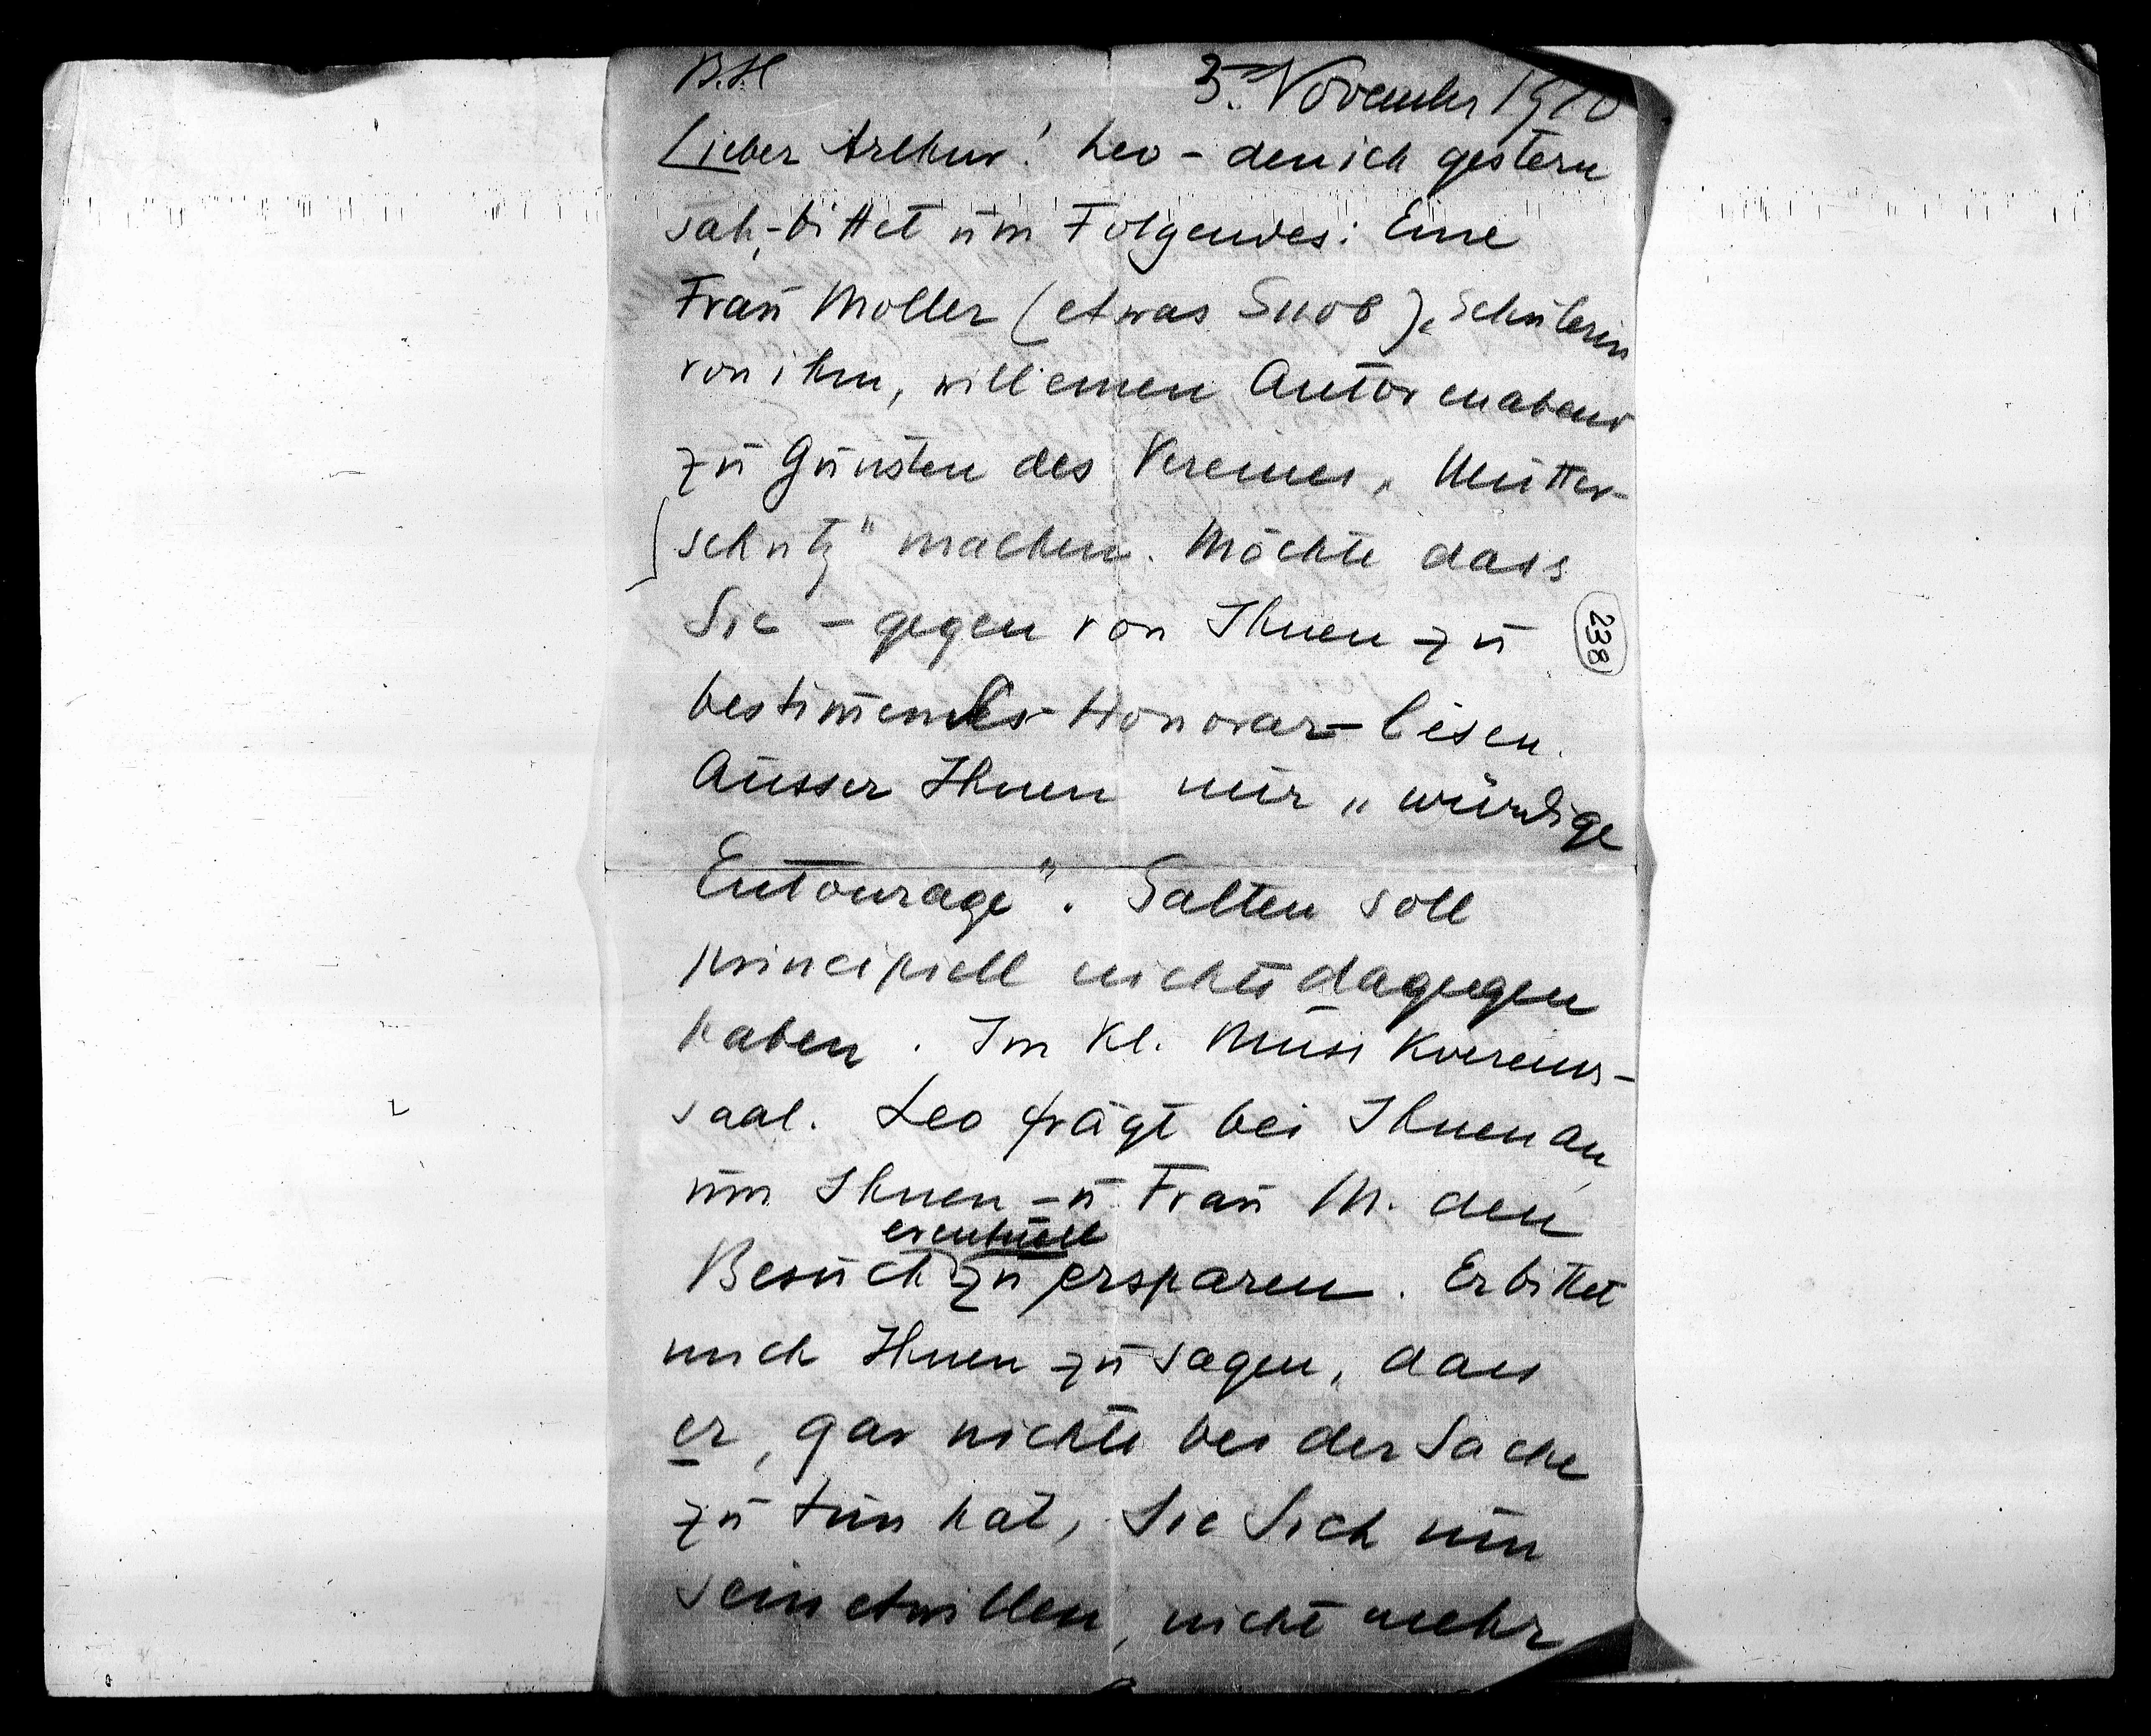 B.H
3. November 1910
Lieber Arthur! Leo – den ich gestern
sah, – bittet um Folgendes: Eine
Frau Moller (etwas Snob), Schülerin
von ihm, will einen Autorenabend
zu Gunsten des Vereines „Mutter-
schutz" machen. Möchte dass
Sie – gegen von Ihnen zu
Honorar – lesen.
Ausser Ihnen nur „würdige
Entourage". Salten soll
principiell nichts dagegen
haben. Im Kl. Musikvereins-
saal. Leo frägt bei Ihnen an,
um Ihnen – u Frau M. den
eventuell
Besuch zu ersparen. Er bittet
mich Ihnen zu sagen, dass
er, gar nichts bei der Sache
zu tun hat, Sie Sich um
seinetwillen, nicht mehr
238